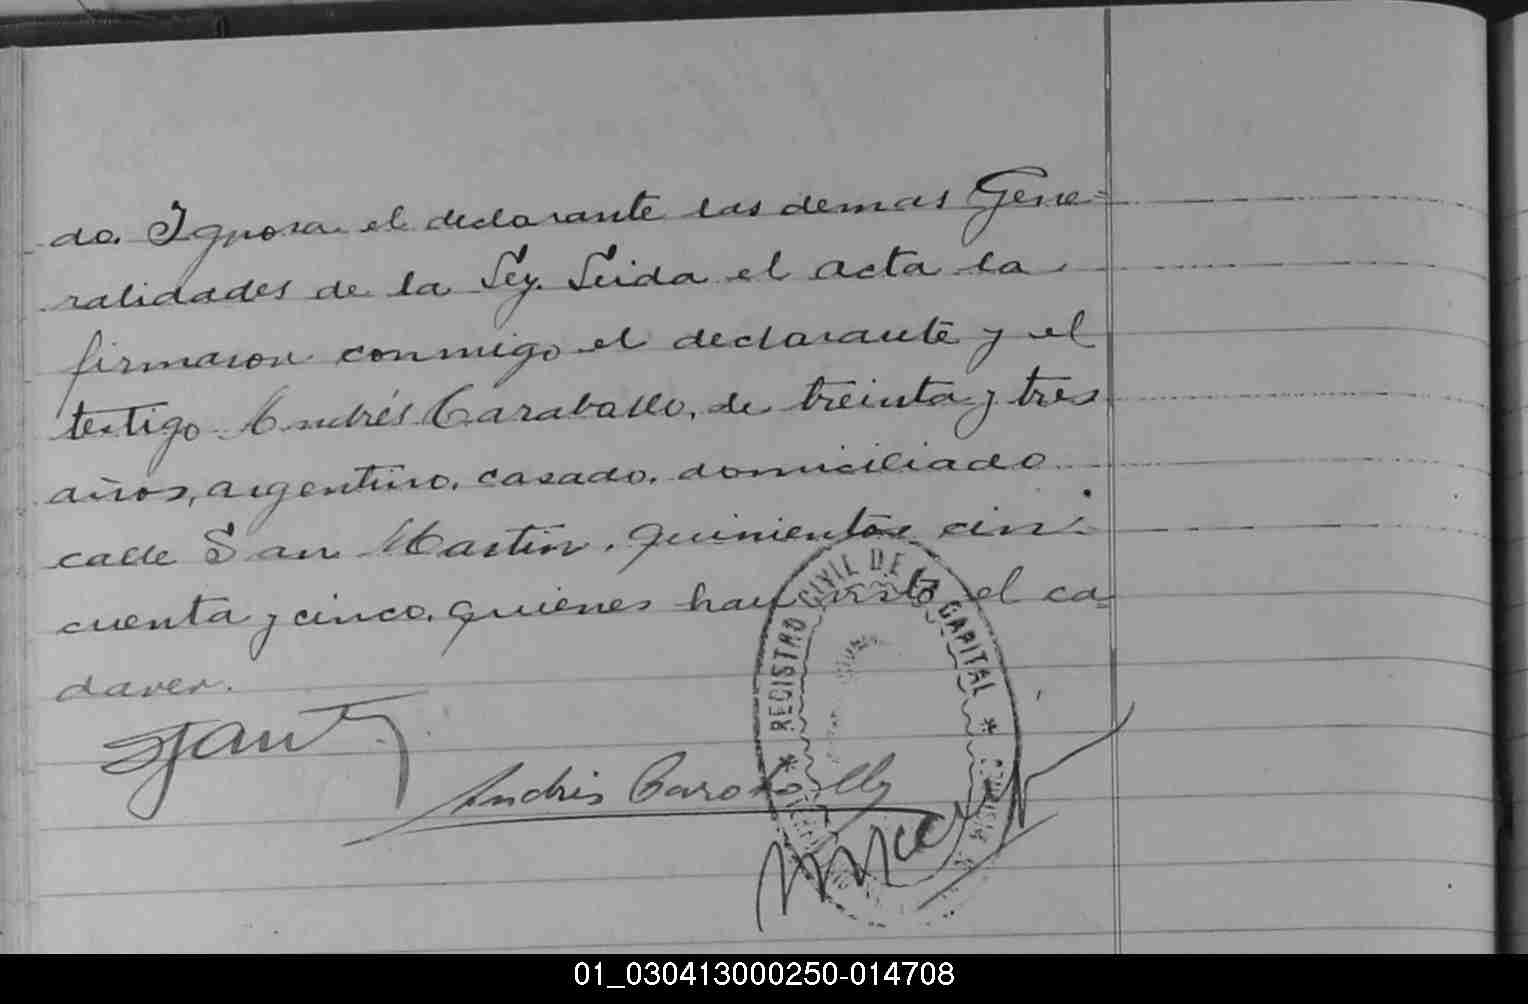 do. Ignora el declarante las demas Gene=
ralidades de la Ley. Leida el acta la
firmaron conmigo el declarante y el
testigo Andrés Caraballo, de treinta y tres
años, argentino, casado, domiciliado
calle San Martin, quinientos cin-
cuenta y cinco, quienes han visto el ca-
daver.
Andrés Caraballo
REGISTRO CIVIL DE LA CAPITAL
01_030413000250-014708